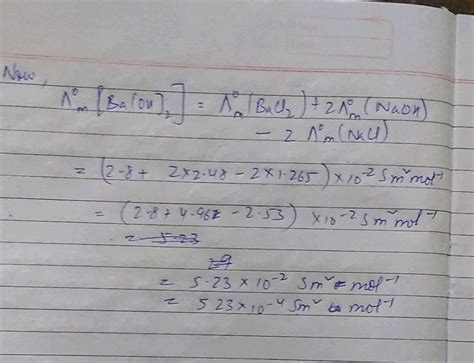 Now,
Λ°m [Ba(OH)2] = Λ°m (BaCl2) + 2Λ°m (NaOH)
− 2 Λ°m (NaCl)
= (2.8 + 2×2.48 − 2×1.265) ×10⁻² Sm² mol⁻¹
= (2.8 + 4.96 − 2.53) ×10⁻² Sm² mol⁻¹
= 5.23
= 5.23 × 10⁻² Sm² mol⁻¹
= 523 × 10⁻⁴ Sm² mol⁻¹